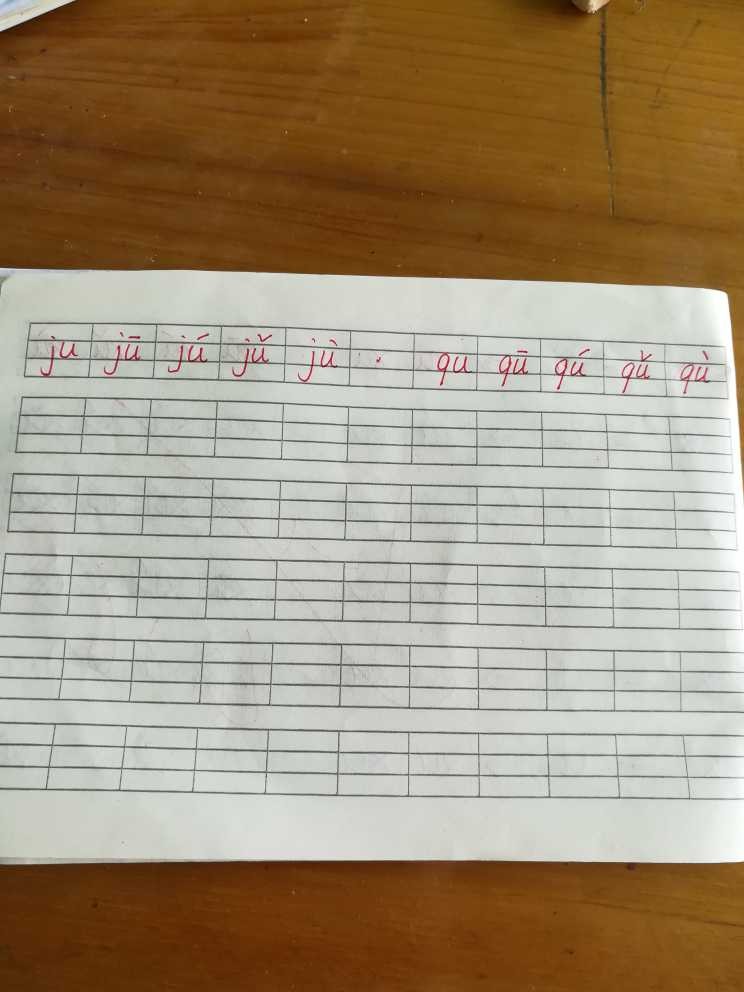 ju jū jú jǔ jù · qu qū qú qǔ qù